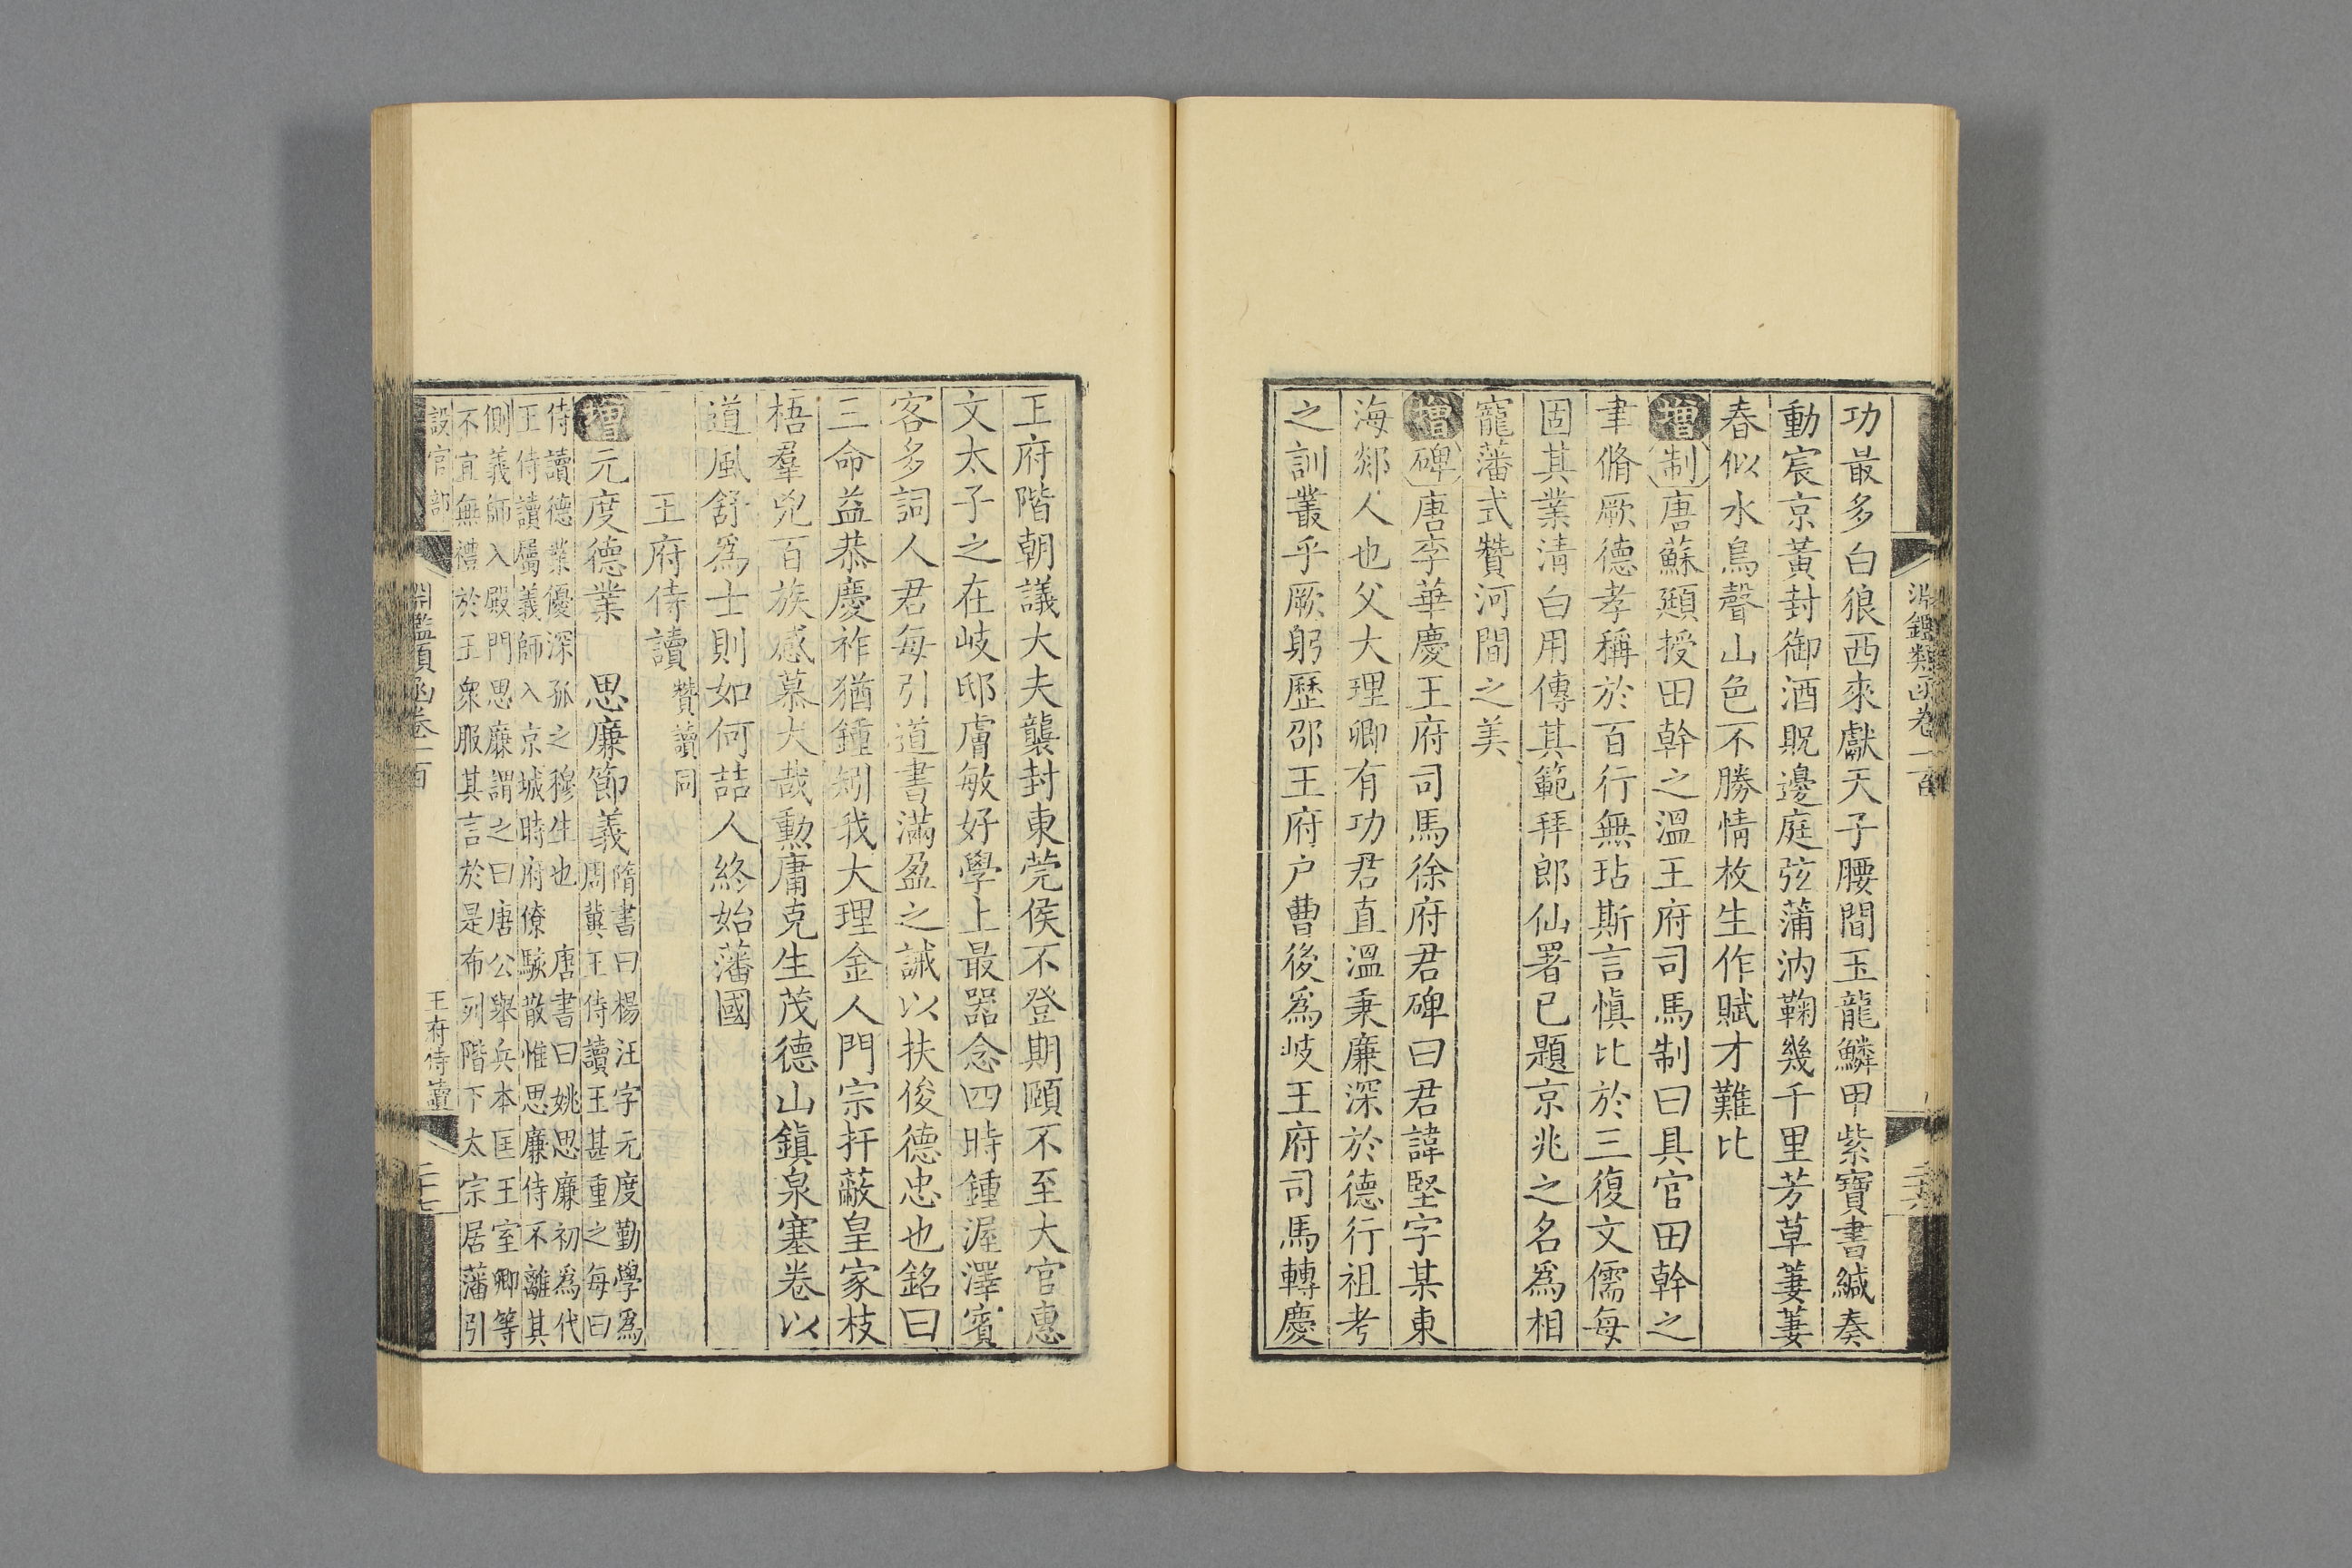 淵鑑類函卷一百
二十六
功最多白狼西來獻天子腰間玉龍鱗甲紫寶書緘奏
動宸京黃封御酒貺邊庭弦蒲汭鞠幾千里芳草萋萋
春似水鳥聲山色不勝情枚生作賦才難比
增制唐蘇頲授田幹之溫王府司馬制曰具官田幹之
聿脩厥德孝稱於百行無玷斯言愼比於三復文儒每
固其業清白用傳其範拜郎仙署已題京兆之名爲相
寵藩式贊河間之美
增碑唐李華慶王府司馬徐府君碑曰君諱堅字某東
海郯人也父大理卿有功君直溫秉廉深於德行祖考
之訓叢乎厥躬歷邵王府户曹後爲岐王府司馬轉慶
王府階朝議大夫襲封東莞侯不登期頤不至大官惠
文太子之在岐邸膚敏好學上最器念四時鍾渥澤賓
客多詞人君每引道書滿盈之誡以扶俊德忠也銘曰
三命益恭慶祚猶鍾矧我大理金人門宗扞蔽皇家枝
梧羣兇百族感慕大哉勲庸克生茂德山鎮泉塞卷以
道風舒爲士則如何喆人終始藩國
王府侍讀贊讀同
增元度德業 思廉節義隋書曰楊汪字元度勤學爲
周冀王侍讀王甚重之每曰
侍讀德業優深孤之穆生也 唐書曰姚思廉初爲代
王侍讀屬義師入京城時府僚駭散惟思廉侍不離其
側義師入殿門思廉謂之曰唐公舉兵本匡王室卿等
不宜無禮於王衆服其言於是布列階下太宗居藩引
設官部
淵鑑類函卷一百
王府侍讀
二十七